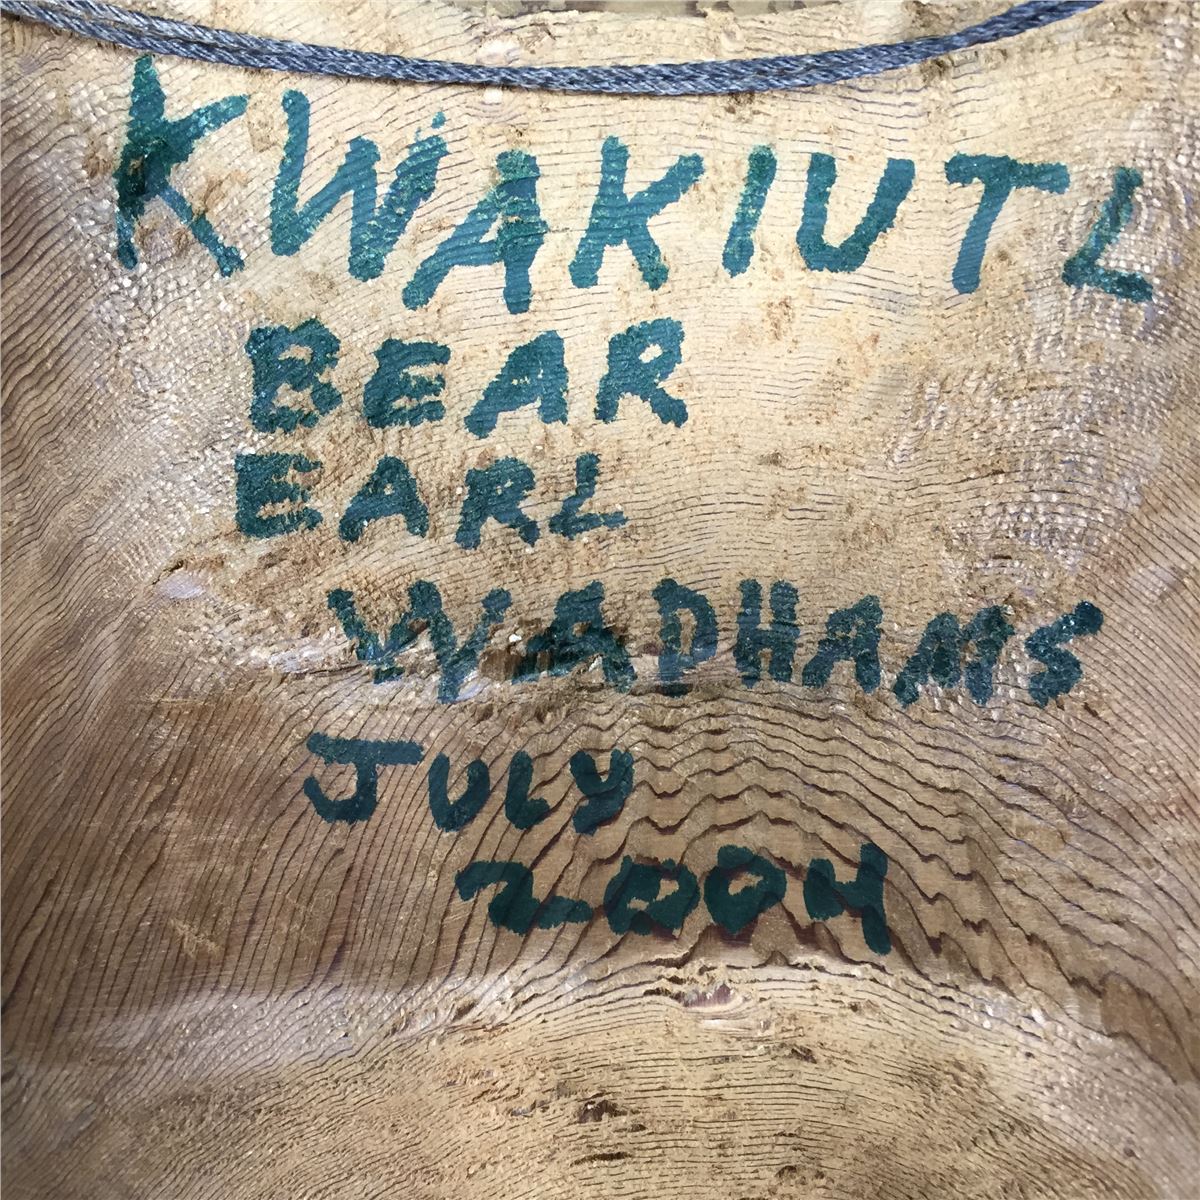 KWAKIUTL
BEAR
EARL
WADHAMS
JULY
2004